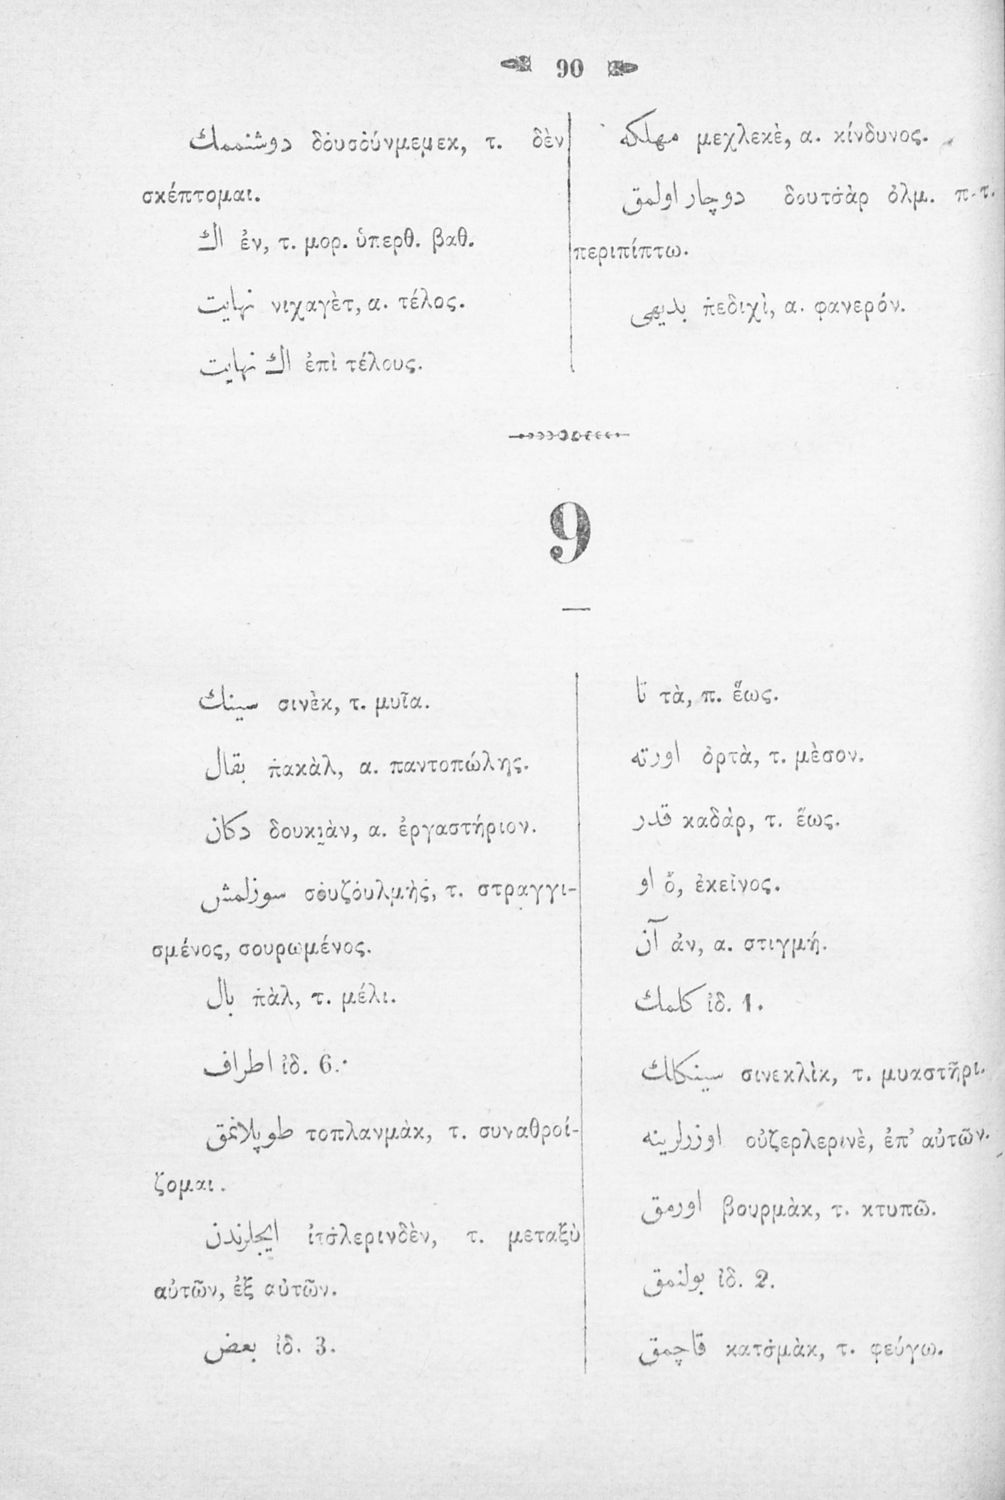 90
دوشنممك δὀυσὀύνμεμεκ, τ. δὲν
σκέπτομαι.
اڭ ἐν, τ. μορ. ὑπερθ. βαθ.
نهايت νιχαγὲτ, α. τέλος.
اڭ نهايت ἐπὶ τέλους.
مهلكه μεχλεκὲ, α. κίνδυνος.
دوچار اولمق δουτσ̇ὰρ ὀλμ. π-τ.
περιπίπτω.
بديهى π̇εδιχὶ, α. φανερόν.
9
سينك σινὲκ, τ. μυῖα.
بقال π̇ακὰλ, α. παντοπώλης.
دكان δουκιὰν, α. ἐργαστήριον.
سوزلمش σὀυζὀυλμὴς̇, τ. στραγγι-
σμένος, σουρωμένος.
بال π̇ὰλ, τ. μέλι.
اطراف ἰδ. 6.
طوپلانمق τοπλανμὰκ, τ. συναθροί-
ζομαι.
ايچلرندن ἰτσ̇λερινδὲν, τ. μεταξὺ
αὐτῶν, ἐξ αὐτῶν.
بعض ἰδ. 3.
تا τὰ, π. ἕως.
اورته ὀρτὰ, τ. μὲσον.
قدر καδὰρ, τ. ἕως.
او ὄ, ἐκεῖνος.
آن ἀν, α. στιγμή.
كلمك ἰδ. 1.
سينكلك σινεκλὶκ, τ. μυαστῆρι.
اوزرلرينه οὐζερλερινὲ, ἐπ' αὐτῶν.
اورمق βουρμὰκ, τ. κτυπῶ.
بولنمق ἰδ. 2.
قاچمق κατσ̇μὰκ, τ. φεύγω.